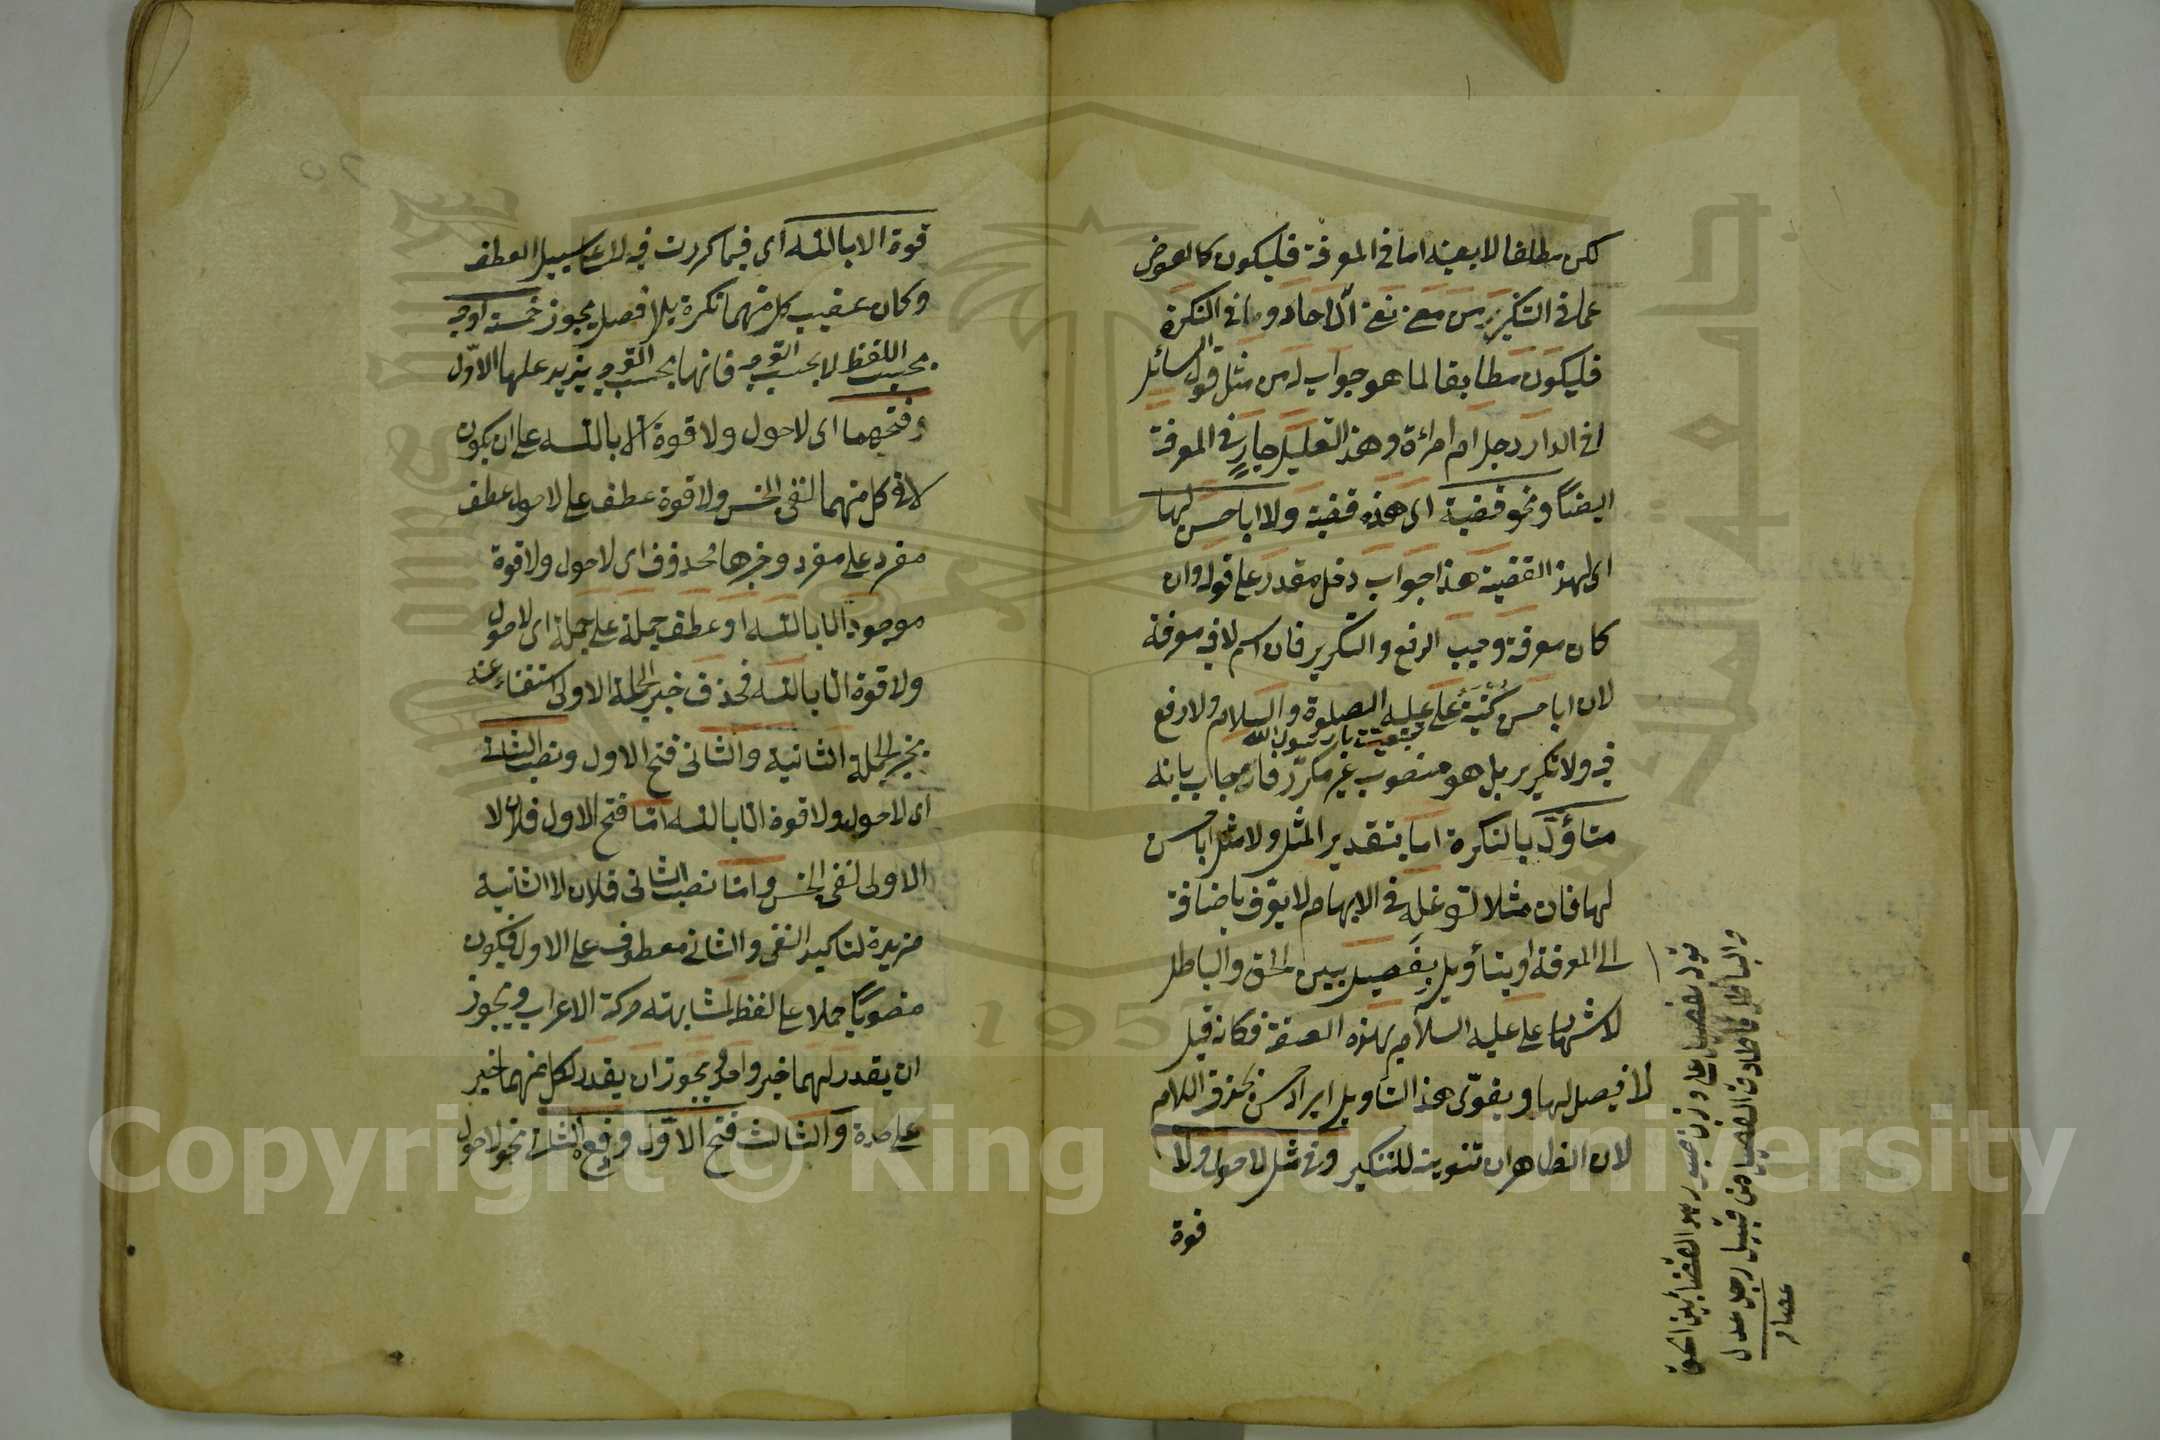 لكن مطلقا لا بعينه اما في المعرفة فليكون كالعوض
عما في التنكير من معنى نفي الآحاد واما في النكرة
فليكون مطابقا لما هو جواب له من مثل قول السائل
افي الدار رجل ام امرأة وهذا التعليل جار في المعرفة
ايضاً ونحو قضية اى هذه قضية ولا ابا حسن لها
اى لهذه القضية هذا جواب دخل مقدر على قوله وان
كان معرفة وجب الرفع والتكرير فان اسم لا فيه معرفة
لان ابا حسن كنية على عليه الصلوة والسلام ولا رفع
فيه ولا تكرير بل هو منصوب غير مكرر فاجاب بانه
متأول بالنكرة اما بتقدير المثل ولا مثل ابا حسن
لها فان مثلا لتوغله في الابهام لا يتعرف باضافة
الى المعرفة او بتأويل بفيصل بين الحق والباطل
لاشتهار على عليه السلام بهذه الصفة فكانه قيل
لا فيصل لها ويقوى هذا التأويل ايراد حسن بحذف اللام
لان الظاهر ان تنوينه للتنكير وفي مثل لا حول ولا
قوة
قوله بفيصل على وزن حيدر هو القضاء بين الحق
والباطل فاطلاق الفيصل من قبيل رجل عدل
عصام
قوة الا بالله اى فيما كررت فيه لا على سبيل العطف
وكان عقيب كل منهما نكرة بلا فصل يجوز خمسة اوجه
بحسب اللفظ لا بحسب التوجيه فانها بحسب التوجيه يزيد عليها الاول
فتحهما اى لا حول ولا قوة الا بالله على ان يكون
لا في كل منهما لنفى الجنس ولا قوة عطف على لا حول عطف
مفرد على مفرد وخبرها محذوف اى لا حول ولا قوة
موجود الا بالله او عطف جملة على جملة اى لا حول
ولا قوة الا بالله فحذف خبر الجملة الاولى استغناء عنه
بخبر الجملة الثانية والثانى فتح الاول ونصب الثانى
اى لا حول ولا قوة الا بالله اما فتح الاول فلان لا
الاولى لنفى الجنس واما نصب الثانى فلان لا الثانية
مزيدة لتاكيد النفى والثانى معطوف على الاول فيكون
منصوباً حملا على لفظه لمشابهته حركة الاعراب ويجوز
ان يقدر لهما خبر واحد ويجوز ان يقدر لكل منهما خبر
على حدة والثالث فتح الاول ورفع الثانى نحو لا حول
Copyright © King Saud University
1957